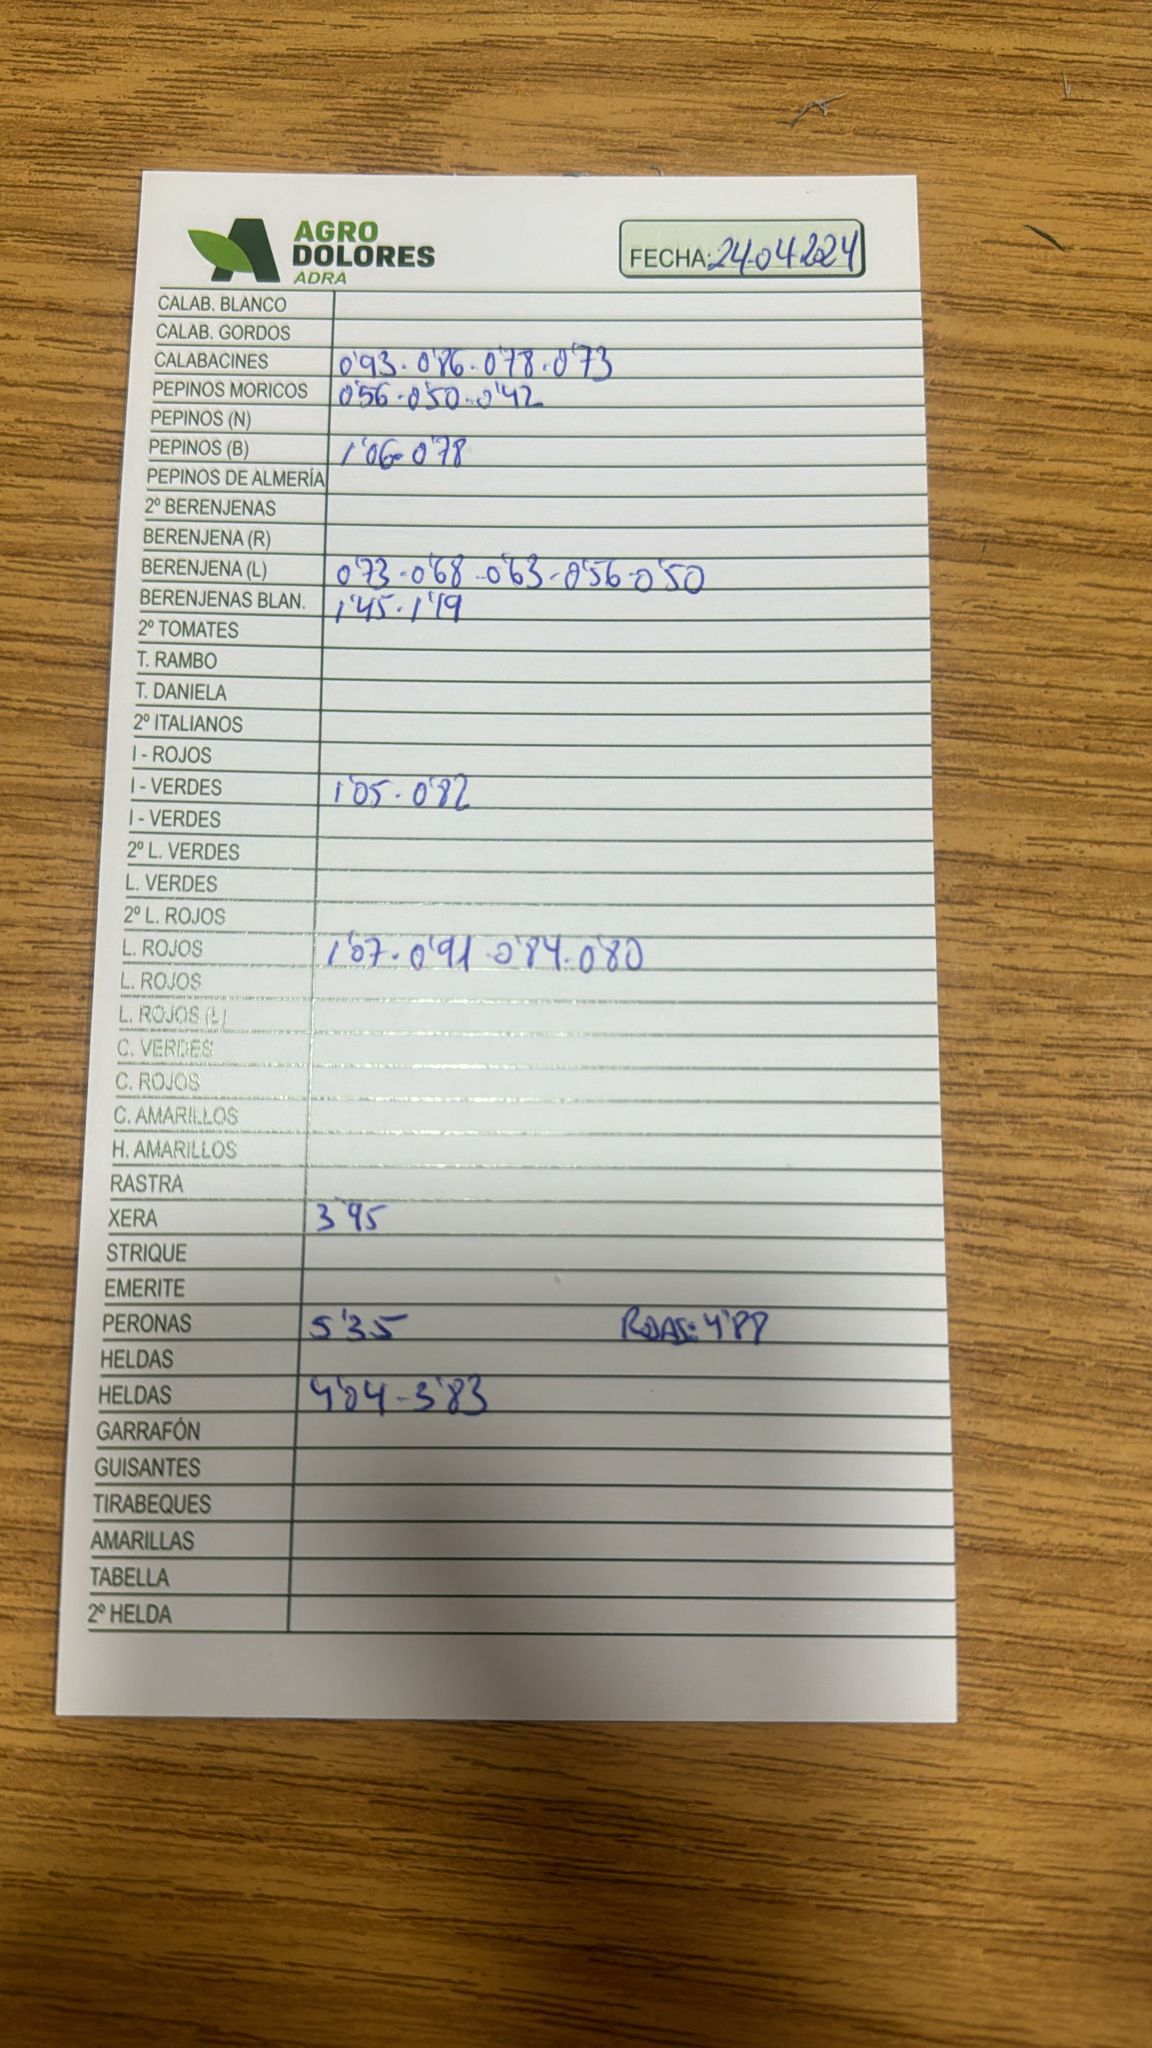 AGRO
DOLORES
ADRA
FECHA: 24-04-2024
CALAB. BLANCO
CALAB. GORDOS
CALABACINES 0'93 - 0'86 - 0'78 - 0'73
PEPINOS MORICOS 0'56 - 0'50 - 0'42
PEPINOS (N)
PEPINOS (B) 1'06 - 0'78
PEPINOS DE ALMERÍA
2º BERENJENAS
BERENJENA (R)
BERENJENA (L) 0'73 - 0'68 - 0'63 - 0'56 - 0'50
BERENJENAS BLAN. 1'45 - 1'19
2º TOMATES
T. RAMBO
T. DANIELA
2º ITALIANOS
I - ROJOS
I - VERDES 1'05 - 0'82
I - VERDES
2º L. VERDES
L. VERDES
2º L. ROJOS
L. ROJOS 1'07 - 0'91 - 0'84 - 0'80
L. ROJOS
L. ROJOS (L)
C. VERDES
C. ROJOS
C. AMARILLOS
H. AMARILLOS
RASTRA
XERA 3'95
STRIQUE
EMERITE
PERONAS 5'35 ROJAS: 4'88
HELDAS
HELDAS 4'04 - 3'83
GARRAFÓN
GUISANTES
TIRABEQUES
AMARILLAS
TABELLA
2º HELDA